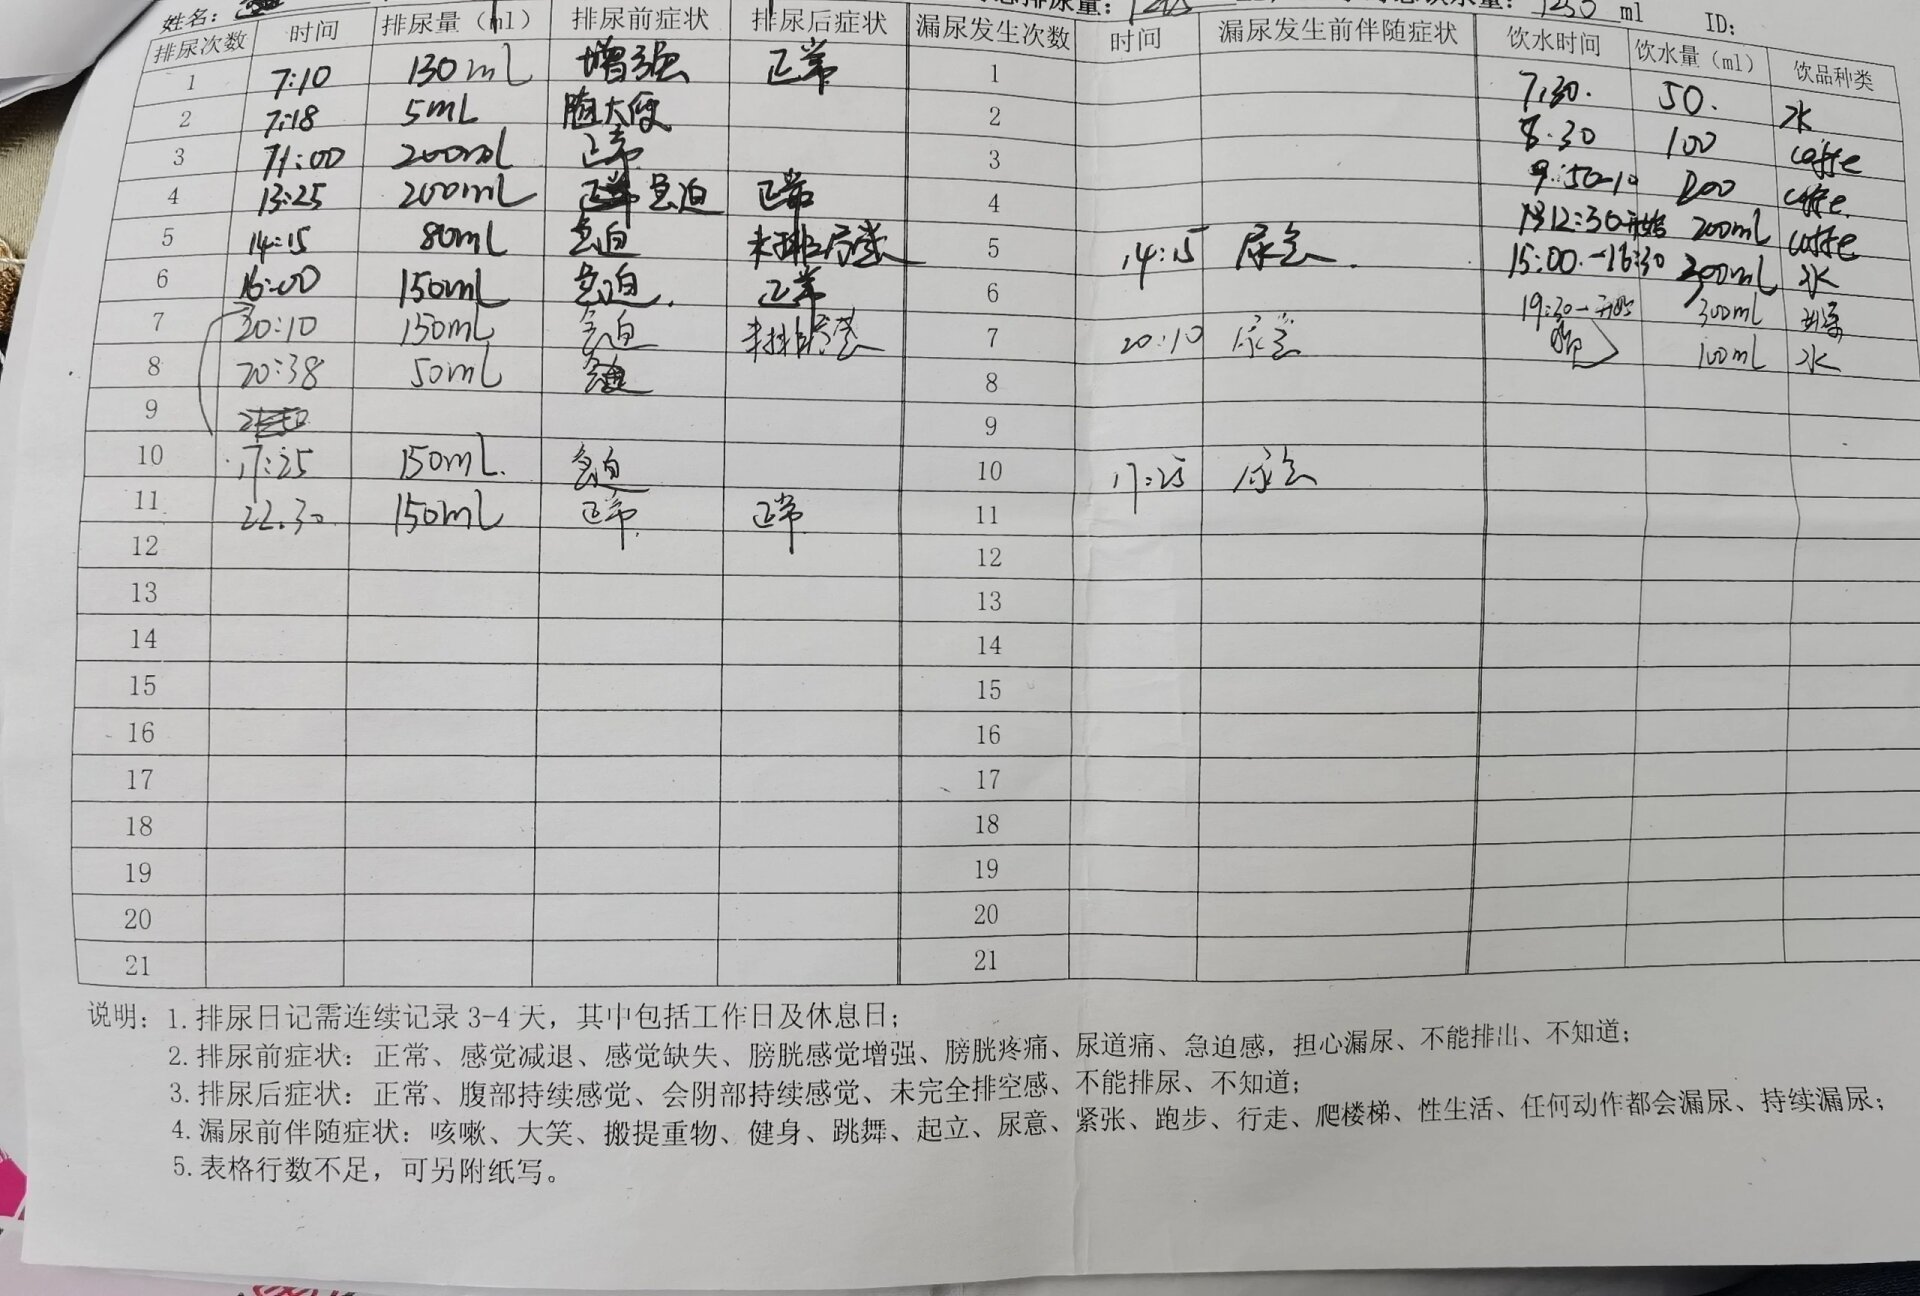 姓名： 总排尿量： 总饮水量：1250 ml ID：
排尿次数 时间 排尿量（ml） 排尿前症状 排尿后症状 漏尿发生次数 时间 漏尿发生前伴随症状 饮水时间 饮水量（ml） 饮品种类
1 7:10 130ml 增强 正常 1 7:30. 50. 水
2 7:18 5mL 随大便 2 8:30 100 coffe
3 11:00 200ml 正常 3 9:50-10 200 coffe.
4 13:25 200mL 急迫 正常 4 12:30开始 200mL coffe
5 14:15 80mL 急迫 未排尽感 5 14:15 尿急. 15:00.-16:30 300mL 水
6 16:00 150mL 急迫. 正常 6 19:30-开始 300ml
7 20:10 150mL 急迫 未排尽感 7 20:10 尿急 100mL 水
8 20:38 50mL 8
9 9
10 17:25 150mL. 急迫 10 17:25 尿急
11 22.30 150mL 正常. 正常 11
12 12
13 13
14 14
15 15
16 16
17 17
18 18
19 19
20 20
21 21
说明：1.排尿日记需连续记录3-4天，其中包括工作日及休息日；
2.排尿前症状：正常、感觉减退、感觉缺失、膀胱感觉增强、膀胱疼痛、尿道痛、急迫感，担心漏尿、不能排出、不知道；
3.排尿后症状：正常、腹部持续感觉、会阴部持续感觉、未完全排空感、不能排尿、不知道；
4.漏尿前伴随症状：咳嗽、大笑、搬提重物、健身、跳舞、起立、尿意、紧张、跑步、行走、爬楼梯、性生活、任何动作都会漏尿、持续漏尿；
5.表格行数不足，可另附纸写。